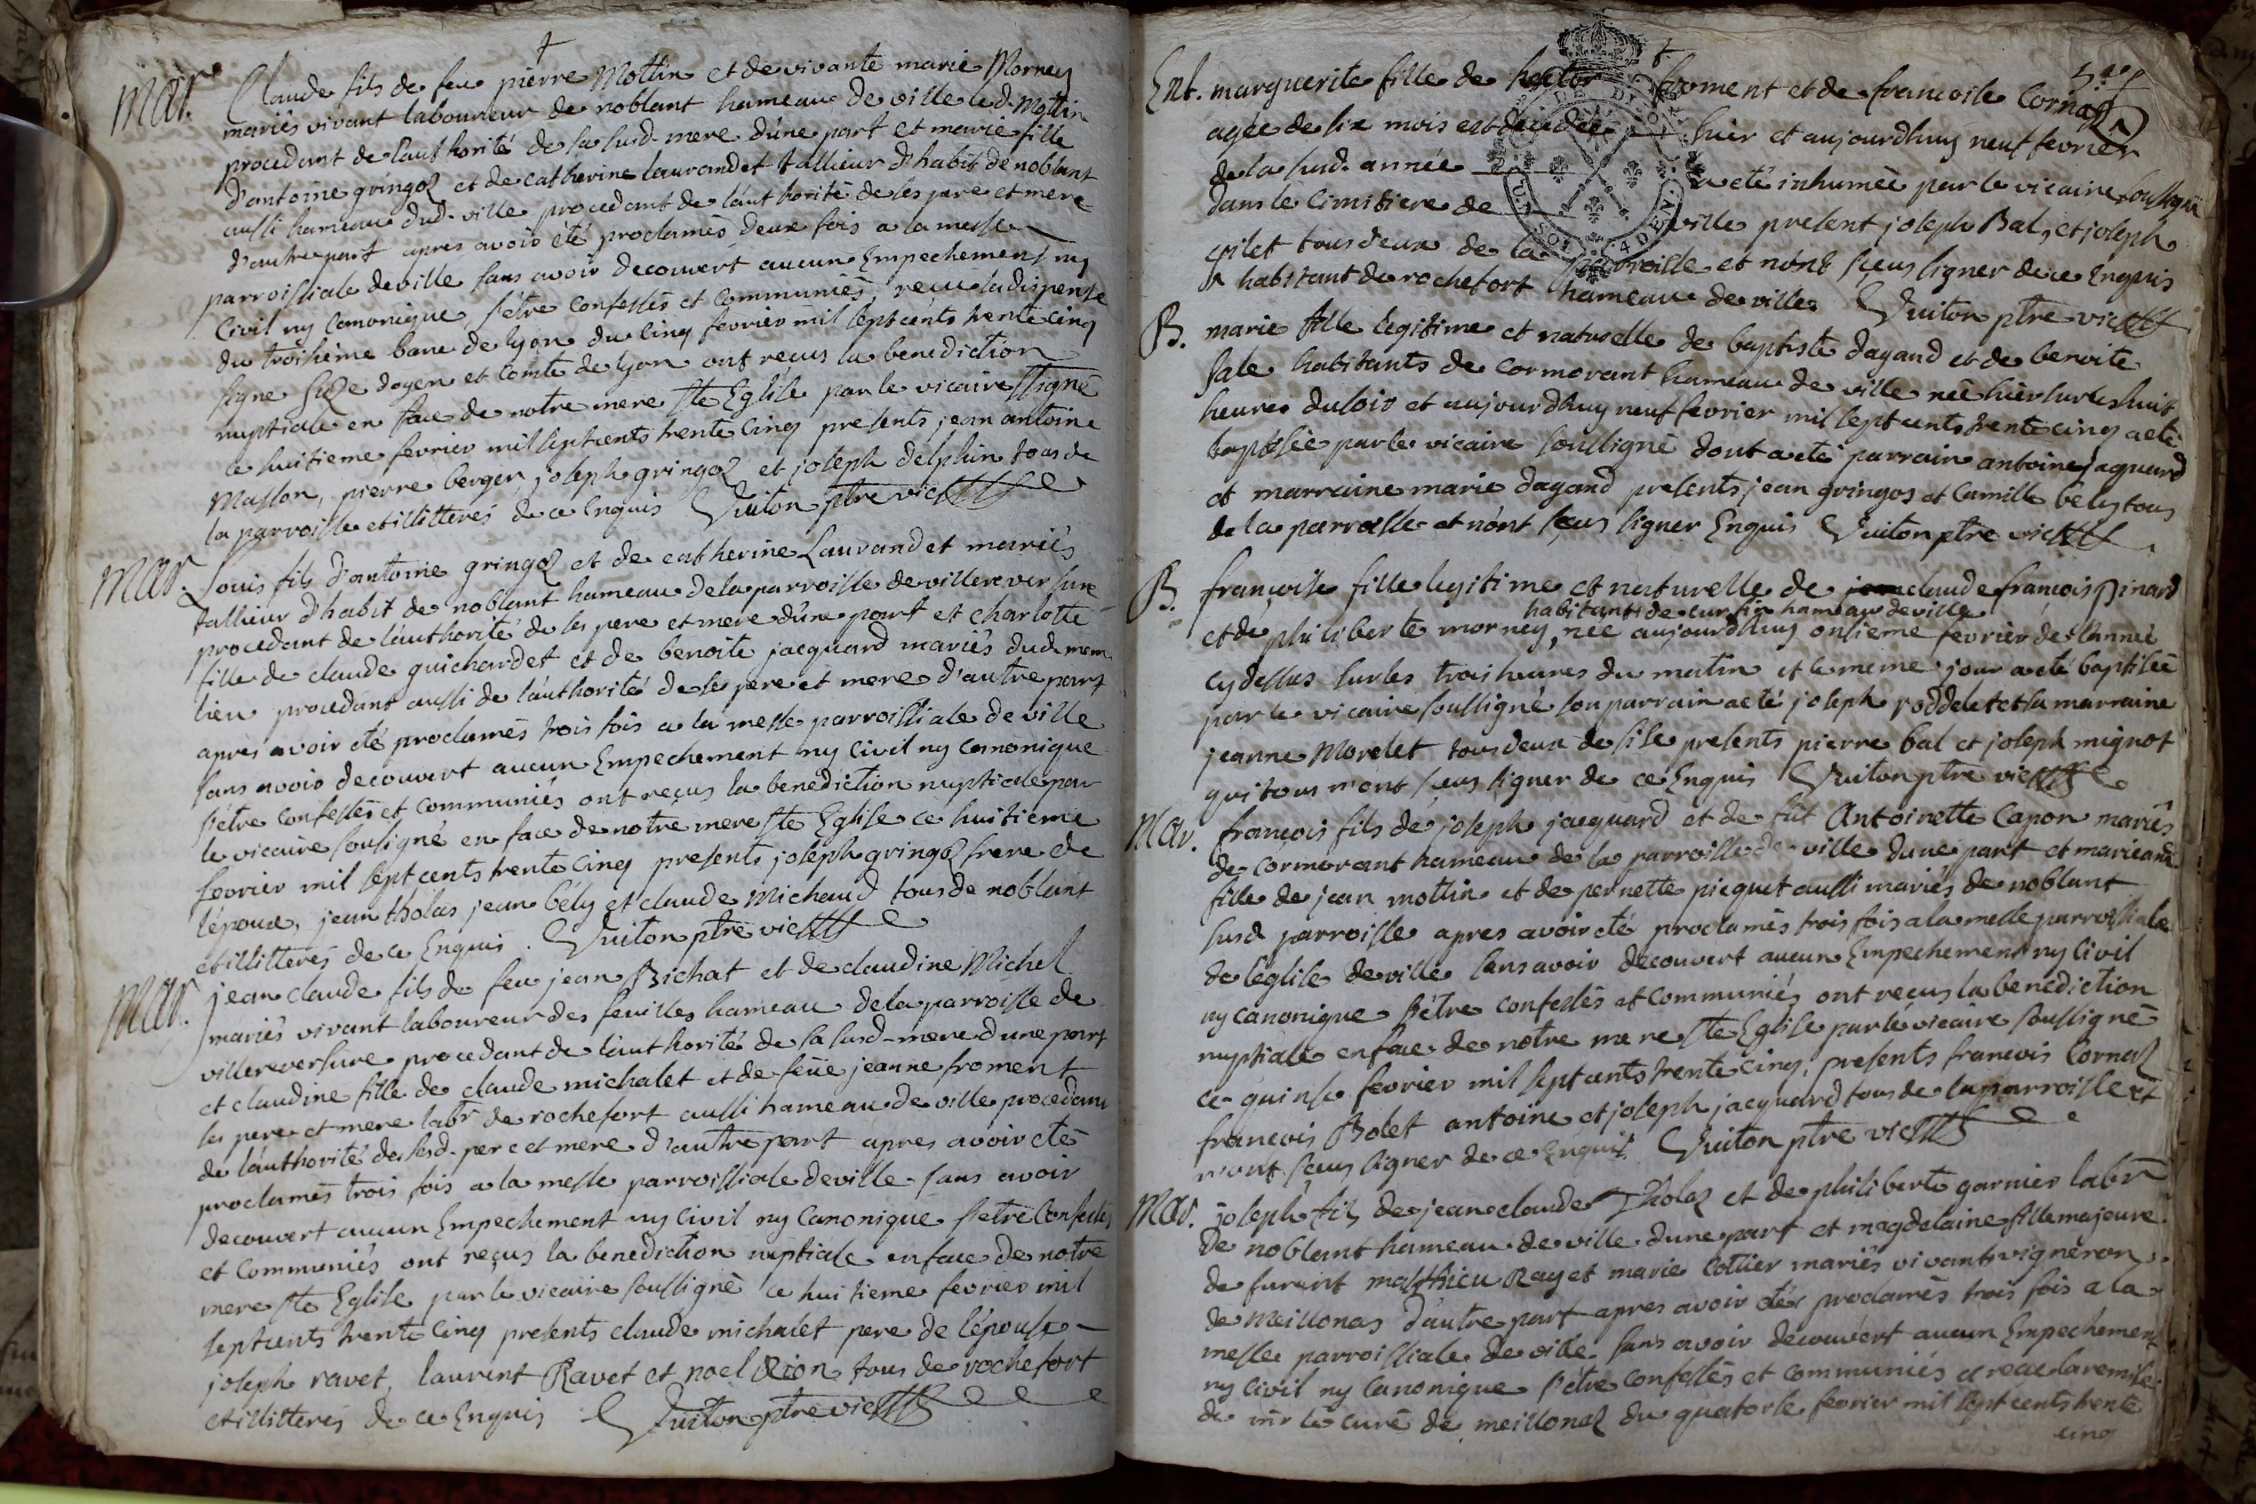 Mar. Claude fils de feu pierre Mottin et de vivante marie Morney
mariés vivant laboureur de noblant hameau de ville led. Mottin
procedant de l'authorité de sa susd. mere d'une part et marie fille
d'antoine gringoz et de catherine laurandet tallieur d'habit de noblant
aussi hameau dud. ville procedant de l'authorité de ses pere et mere
d'autre part apres avoir été proclamés deux fois a la messe
parroissiale de ville sans avoir decouvert aucun Empechement ny
Civil ny Canonique s'etre confessés et communiés, recu la dispense
du troisieme banc de lyon du cinq fevrier mil sept cents trente cinq
signé doyen et comte de lyon ont reçus la benediction
nuptiale en face de notre mere ste Eglise par le vicaire ssigné
ce huitieme fevrier mil sept cents trente cinq presents jean antoine
Masson, pierre berger, joseph gringoz et joseph delphin tous de
la parroisse et illitterés de ce Enquis Vuiton ptre vic
Mar. Louis fils d'antoine gringoz et de catherine Laurandet mariés
tallieur d'habit de noblant hameau de la parroisse de villereversure
procedant de l'authorité de ses pere et mere d'une part et charlotte
fille de claude guichardet et de benoite jacquard mariés dud. mem
lieu procedant aussi de l'authorité de ses pere et mere d'autre part
apres avoir été proclamés trois fois a la messe parroissiale de ville
sans avoir decouvert aucun Empechement ny Civil ny Canonique
s'étre confessés et communiés ont reçus la benediction nuptiale par
le vicaire sousigné en face de notre mere ste Eglise ce huitieme
fevrier mil sept cents trente cinq presents joseph gringoz frere de
l'époux, jean tholas jean bély et claude Michaud tous de noblant
et illitterés de ce Enquis. Vuiton ptre vic
Mar. jean claude fils de feu jean Bichat et de claudine Michel
mariés vivant laboureur des feuilles hameau de la parroisse de
villereversure procedant de l'authorité de sa susd. mere d'une part
et claudine fille de claude michalet et de feüe jeanne froment
ses pere et mere labr de rochefort aussi hameau de ville procedant
de l'authorité de sesd. pere et mere d'autre part apres avoir été
proclamés trois fois a la messe parroissiale de ville sans avoir
decouvert aucun Empechement ny Civil ny Canonique s'etre Confessés
et Communiés ont reçus la benediction nuptiale en face de notre
mere ste Eglise par le vicaire soussigné ce huitieme fevrier mil
sept cents trente cinq presents claude michalet pere de l'épouse
joseph ravet, laurent Ravet et noel Rion tous de rochefort
et illitterés de ce Enquis Vuiton ptre vic
Ent. marguerite fille de hector froment et de francoise Cornaz
agée de six mois est decedée hier et aujourdhuy neuf fevrier
de la susd. année a eté inhumée par le vicaire soussigné
dans le Cimitiere de ville present joseph Bal, et joseph
gilet tous deux de la parroisse et n'ont sçeus signer de ce Enquis
habitant de rochefort hameau de ville. Vuiton ptre vic
B. marie fille legitime et naturelle de baptiste dagand et de benoite
sale habitants de cormorant hameau de ville née hier sur les huit
heures du soir et aujourdhuy neuf fevrier mil sept cents trente cinq a eté
baptisée par le vicaire soussigné dont a eté parrain antoine jaquard
et marraine marie dagand presents jean gringoz et Camille bely tous
de la parroisse et n'ont sçeus signer Enquis Vuiton ptre vic
B. françoise fille legitime et naturelle de claude francois pinard
habitants de curfin hameau de ville
et de philiberte morney, née aujourdhuy onsieme fevrier de l'année
cy dessus sur les trois heures du matin et le meme jour a eté baptisée
par le vicaire soussigné son parrain a eté joseph roddelet et sa marraine
jeanne Morelet tous deux de sise presents pierre bal et joseph mignot
qui tous n'ont sçeus signer de ce Enquis Vuiton ptre vic
Mar. françois fils de joseph jacquard et de fut Antoinette Capon mariés
de cormorant hameau de la parroisse de ville d'une part et marie anne
fille de jean mottin et de pernette picquet aussi mariés de noblant
susd. parroisse apres avoir eté proclamés trois fois a la messe parroissiale
de l'eglise de ville sans avoir decouvert aucun Empechement ny Civil
ny canonique s'étre confessés et communiés ont reçus la benediction
nuptiale en face de notre mere ste Eglise par le vicaire soussigné
ce quinse fevrier mil sept cents trente cinq, presents francois Cornaz
francois Bolet antoine et joseph jacquard tous de la parroisse et
n'ont sçeus signer de ce Enquis. Vuiton ptre vic
Mar. joseph fils de jean claude Tholaz et de philiberte garnier labr
de noblant hameau de ville d'une part et magdelaine fille majeure
de furent matthieu Ray et marie Cottier mariés vivants vigneron
de Meillonas d'autre part apres avoir étés proclamés trois fois a la
messe parroissiale de ville sans avoir decouvert aucun Empechement
ny Civil ny Canonique s'étre confessés et communiés et recu la remise
de mr le curé de meillonaz du quatorse fevrier mil sept cents trente
cinq